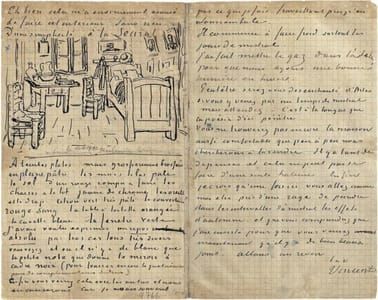 Eh bien cela m'a enormément amusé
de faire cet interieur Sans rien
D'une simplicité à la Seurat
A teintes plates mais grossièrement brossées
en pleine pâte les murs lilas pâle
le sol d'un rouge rompu & fané les
chaises & le lit jaune de chrome les oreillers
et le drap citron vert très pâle la couverture
rouge sang la table à toilette orangée
la cuvette bleue la fenêtre verte
J'avais voulu exprimer un repos
absolu par tous ces tons très divers
vous voyez et où il n'y a de blanc que
la petite note que donne le miroir à
cadre noir (pour fourrer encore la quatrième
paire de complementaires dedans)
Enfin vous verrez cela avec les autres et nous
en causerons Car je ne sais souvent
pas ce que je fais travaillant presqu'en
somnambule.
Il commence à faire froid surtout les
jours de mistral.
J'ai fait mettre le gaz dans l'atelier
pour que nous ayons une bonne
lumière en hiver.
Peutêtre serez vous desenchanté d'Arles
si vous y venez par un temps de mistral
mais attendez.. C'est à la longue que
la poésie d'ici pénètre
Vous ne trouverez pas encore la maison
aussi confortable que peu à peu nous
chercherons à la rendre. Il y a tant de
dépenses et cela ne peut pas se
faire d'une seule haleine Enfin
je crois qu'une fois ici vous allez comme
moi être pris d'une rage de peindre
dans les intervalles du mistral les effets
d'automne et que vous comprendrez que
j'ai insisté pour que vous veniez
maintenant qu'il y a de bien beaux
jours. allons au revoir
t. à v.
Vincent